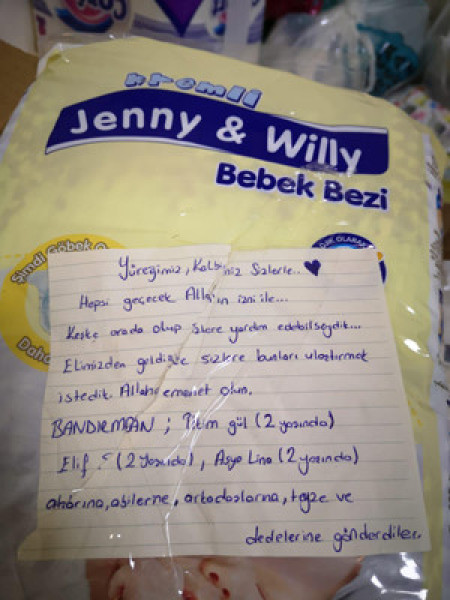 kremli
Jenny & Willy
Bebek Bezi
Şimdi Göbek O
Daha
OLARAK
Yüreğimiz, Kalbiniz Sizlerle.. ♥
Hepsi geçecek Alla'ın izni ile...
Keşke orada olup sizlere yardım edebilseydik...
Elimizden geldiğce sizlere bunları ulaştırmak
istedik. Allaha emanet olun.
BANDIRMADAN ; gül (2 yaşında)
Elif (2 yaşında), Asya Lina (2 yaşında)
abilerine, arkadaşlarına, teyze ve
dedelerine gönderdiler.